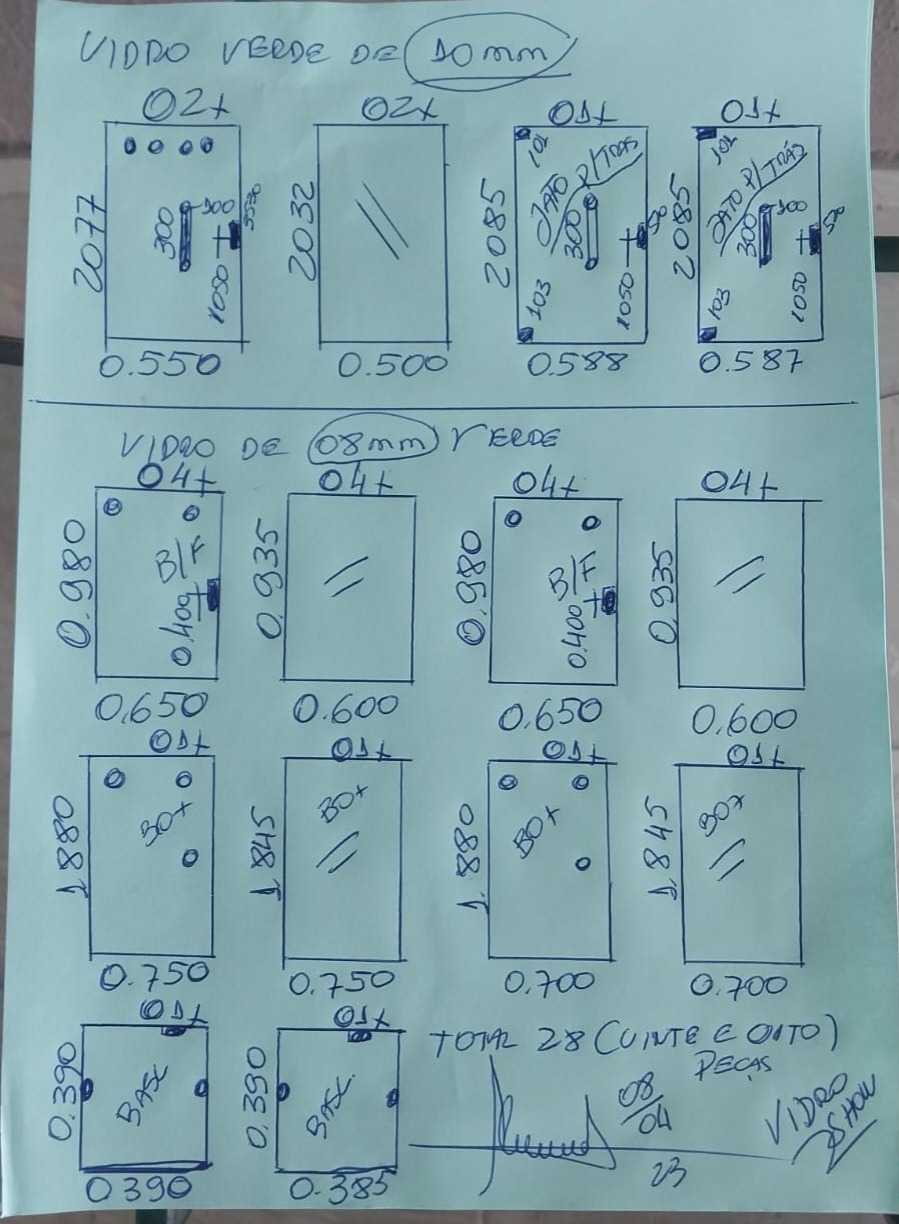 VIDRO VERDE DE 10mm
02x
2077
300
100
1050
0.550
02x
2032
0.500
01x
2085
101
JATO P/TRÁS
300
50
1050
103
0.588
01x
2085
101
JATO P/TRÁS
300
100
50
1050
103
0.587
VIDRO DE 08mm VERDE
04x
0.980
B/F
0.400
0,650
04x
0.935
0.600
04x
0.980
B/F
0.400
0.650
04x
0.935
0.600
01x
1.880
BOX
0.750
01x
1.845
BOX
0.750
01x
1.880
BOX
0.700
01x
1.845
BOX
0.700
01x
0.390
BASC
0390
01x
0.390
BASC
0.385
TOTAL 28 (VINTE E OITO)
PEÇAS
08/04
23
VIDRO
SHOW